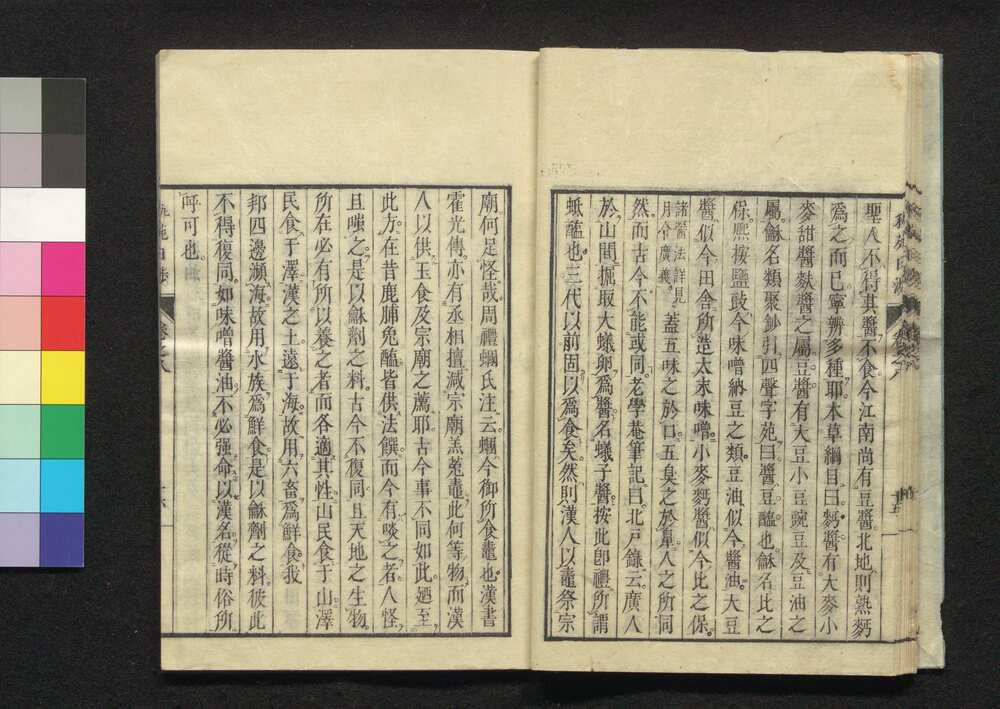 聖人不得其醬不食今江南尚有豆醬北地則熟麪
爲之而已寧辨多種耶本草綱目曰麪醬有大麥小
麥甜醬麩醬之屬豆醬有大豆小豆豌豆及豆油之
屬龢名類聚鈔引四聲字苑曰醬豆醢也龢名比之
保熙按鹽豉今味噌納豆之類豆油似今醬油大豆
醬似今田舎所造太末味噌小麥麪醬似今比之保
諸醬法詳見
月令廣義
蓋五味之於口五臭之於鼻人之所同
然而古今不能或同老學菴筆記曰北戸錄云廣人
於山間掘取大蟻卵爲醬名蟻子醬按此卽禮所謂
蚳醢也三代以前固以爲食矣然則漢人以鼃祭宗
廟何足怪哉周禮蟈氏注云蟈今御所食鼃也漢書
霍光傳亦有丞相擅減宗廟羔菟鼃此何等物而漢
人以供玉食及宗廟之薦耶古今事不同如此廼至
此方在昔鹿脯兔醢皆供法饌而今有啖之者人怪
且嗤之是以龢劑之料古今不復同且天地之生物
所在必有所以養之者而各適其性山民食于山澤
民食于澤漢之土遠于海故用六畜爲鮮食我
邦四邊瀕海故用水族爲鮮食是以龢劑之料彼此
不得復同如味噌醬油不必强命以漢名從時俗所
呼可也